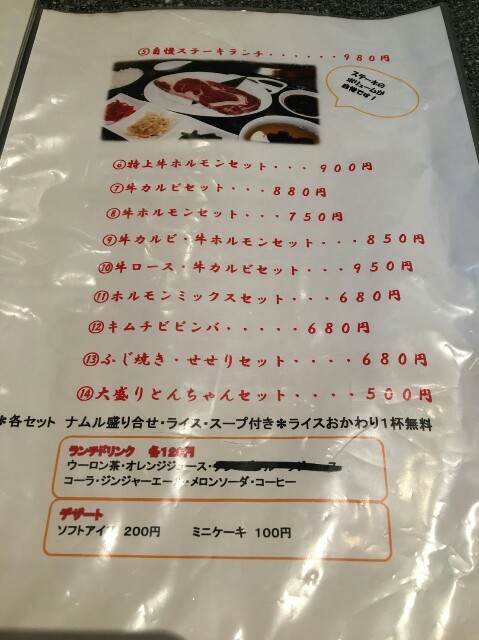 ⑤自慢ステーキランチ・・・・・・980円
ステーキの
ボリュームが
自慢です!
⑥特上牛ホルモンセット・・・900円
⑦牛カルビセット・・・880円
⑧牛ホルモンセット・・・750円
⑨牛カルビ・牛ホルモンセット・・・850円
⑩牛ロース・牛カルビセット・・・950円
⑪ホルモンミックスセット・・・680円
⑫キムチビビンバ・・・・・680円
⑬ふじ焼き・せせりセット・・・・680円
⑭大盛りとんちゃんセット・・・・500円
*各セット ナムル盛り合せ・ライス・スープ付き*ライスおかわり1杯無料
ランチドリンク 各120円
ウーロン茶・オレンジジュース・
コーラ・ジンジャーエール・メロンソーダ・コーヒー
デザート
ソフトアイス 200円 ミニケーキ 100円